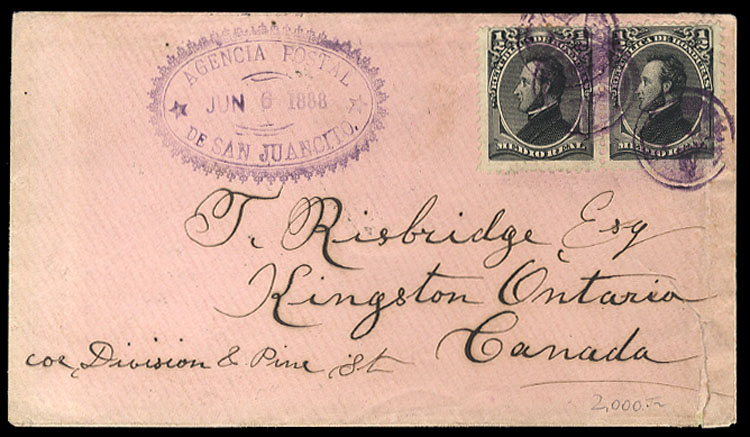 AGENCIA POSTAL
JUN 6 1888
DE SAN JUANCITO.
1/2 1/2
REPUBLICA DE HONDURAS
MEDIO REAL
1/2 1/2
REPUBLICA DE HONDURAS
MEDIO REAL
T. Risbridge, Esq
Kingston Ontario
Canada
cor Division & Pine St
2,000.-